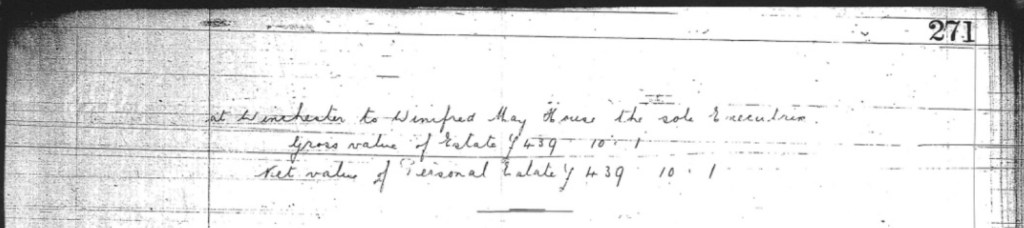 271
at Winchester to Winifred May House the sole Executrix.
Gross value of Estate £439 . 10 . 1
Net value of Personal Estate £439 . 10 . 1